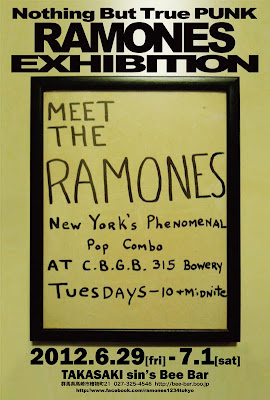 Nothing But True PUNK
RAMONES
EXHIBITION
MEET
THE
RAMONES
NEW YORK'S PHENOMENAL
POP COMBO
AT C.B.G.B. 315 BOWERY
TUESDAYS-10 + MIDNITE
2012.6.29[fri] - 7.1[sat]
TAKASAKI sin's Bee Bar
027-325-4548 http://bee-bar.boo.jp
http://www.facebook.com/ramones1234tokyo